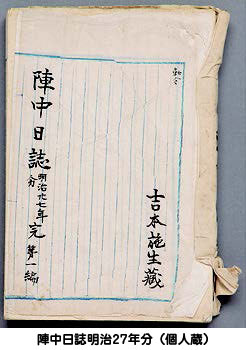 吉本生藏
陣中日誌 明治廿七年分 完 第一編
陣中日誌明治27年分（個人蔵）